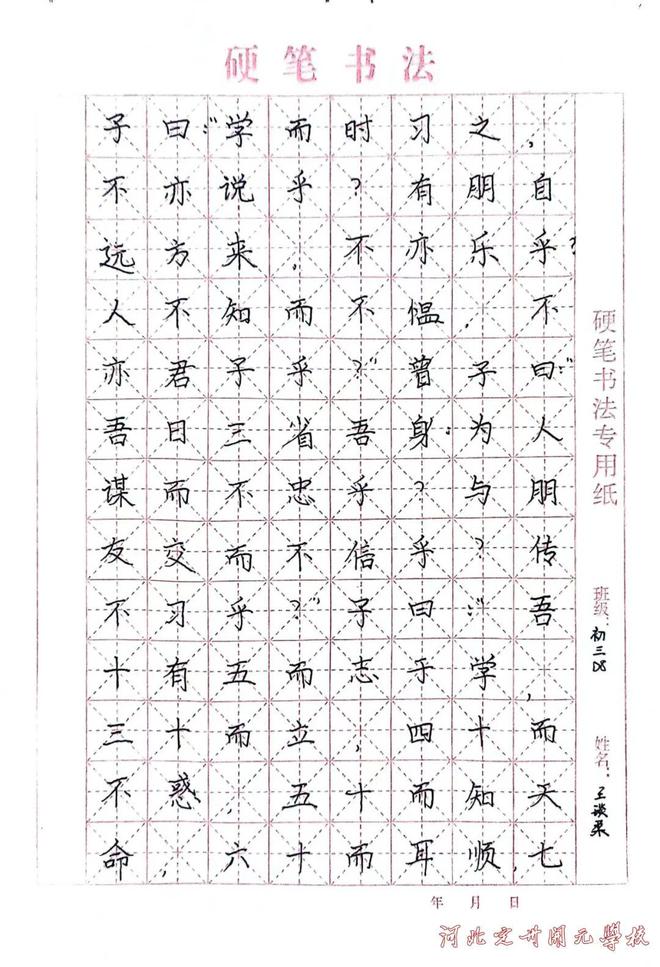 硬笔书法
子曰：“学而时习之，
不亦说乎？有朋自
远方来，不亦乐乎？
人不知而不愠，不
亦君子乎？”曾子曰：“
吾日三省吾身：为人
谋而不忠乎？与朋
友交而不信乎？传
不习乎？”子曰：“吾
十有五而志于学，
三十而立，四十而
不惑，五十而知天
命，六十而耳顺，七
硬笔书法专用纸
班级：初三D8
姓名：王
年 月 日
河北定州開元學校